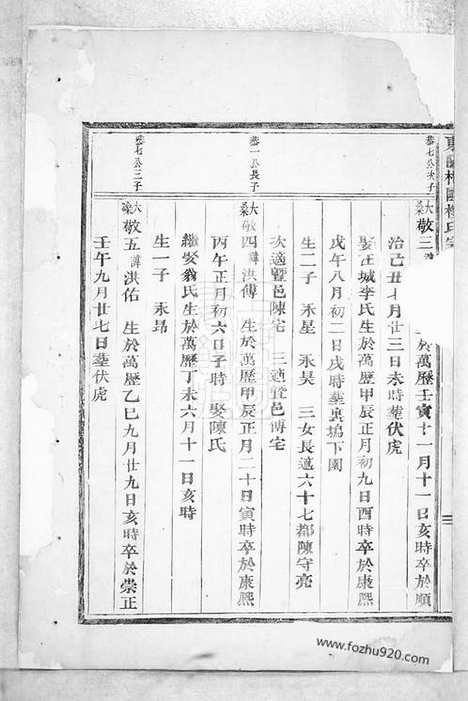 恭七公次子
大桑 敬三 於萬曆壬寅十一月十一日亥時卒於順
治己丑十月廿三日未時葬伏虎
娶在城李氏生於萬曆甲辰正月初九日酉時卒於康熙
戊午八月初二日戌時葬裏塢下園
生二子 永星 永昊 三女長適六十七都陳守亮
次適暨邑陳宅 三適暨邑傅宅
恭一公長子
大桑 敬四 諱洪傅 生於萬曆甲辰正月二十日寅時卒於康熙
丙午正月初六日子時 娶陳氏
繼娶翁氏生於萬曆丁未六月十一日亥時
生一子 永昂
恭七公三子
大桑 敬五 諱洪佑 生於萬曆乙巳九月廿九日亥時卒於崇正
壬午九月廿七日葬伏虎
www.fozhu920.com